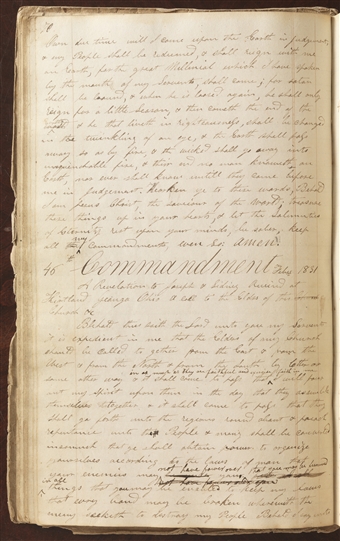 70
own due time will I come upon the Earth in judgement
& my People shall be redeemed, & shall reign with me
on Earth, for the great Millenial which I have spoken
by the mouth of my Servants, shall come; for satan
shall be bound, & when he is loosed again, he shall only
reign for a little season, & then cometh the end of the
& he that liveth in righteousness, shall be changed
in the twinkling of an eye, & the Earth shall pass
away so as by fire, & the wicked shall go away into
unquenchable fire, & their end no man knoweth, on
Earth, nor ever shall know untill they come before
me in judgement, Hearken ye to these words, Behold
I am Jesus Christ, the saviour of the World, treasure
these things up in your hearts, & let the Solemnities
of Eternity rest upon your minds, be sober, keep
all my Commandments, even so. amen.
46th Commandment Feby 1831
A Revelation to Joseph & Sidney Received at
Kirtland Geauga Ohio a call to the Elders of this
Church &c
Behold thus saith the Lord unto you my Servant
it is expedient in me that the Elders of my church
should be called to gether from the East & from the
West & from the North & from the South by letter or
some other way & it shall come to pass that
in as much as they are faithful and exercise faith in
I will pour
out my spirit upon them in the day that they assemble
themselves together & it shall come to pass that they
shall go forth unto the regions round about & preach
repentance unto the People & many shall be converted
insomuch that ye shall obtain power to organize
yourselves according to the laws of man that
your enemies may not have power over
that you may be preserved
in all
things that you may be enabled to keep my laws
that every band may be broken wherewith the
enemy seeketh to destroy my People Behold I say unto